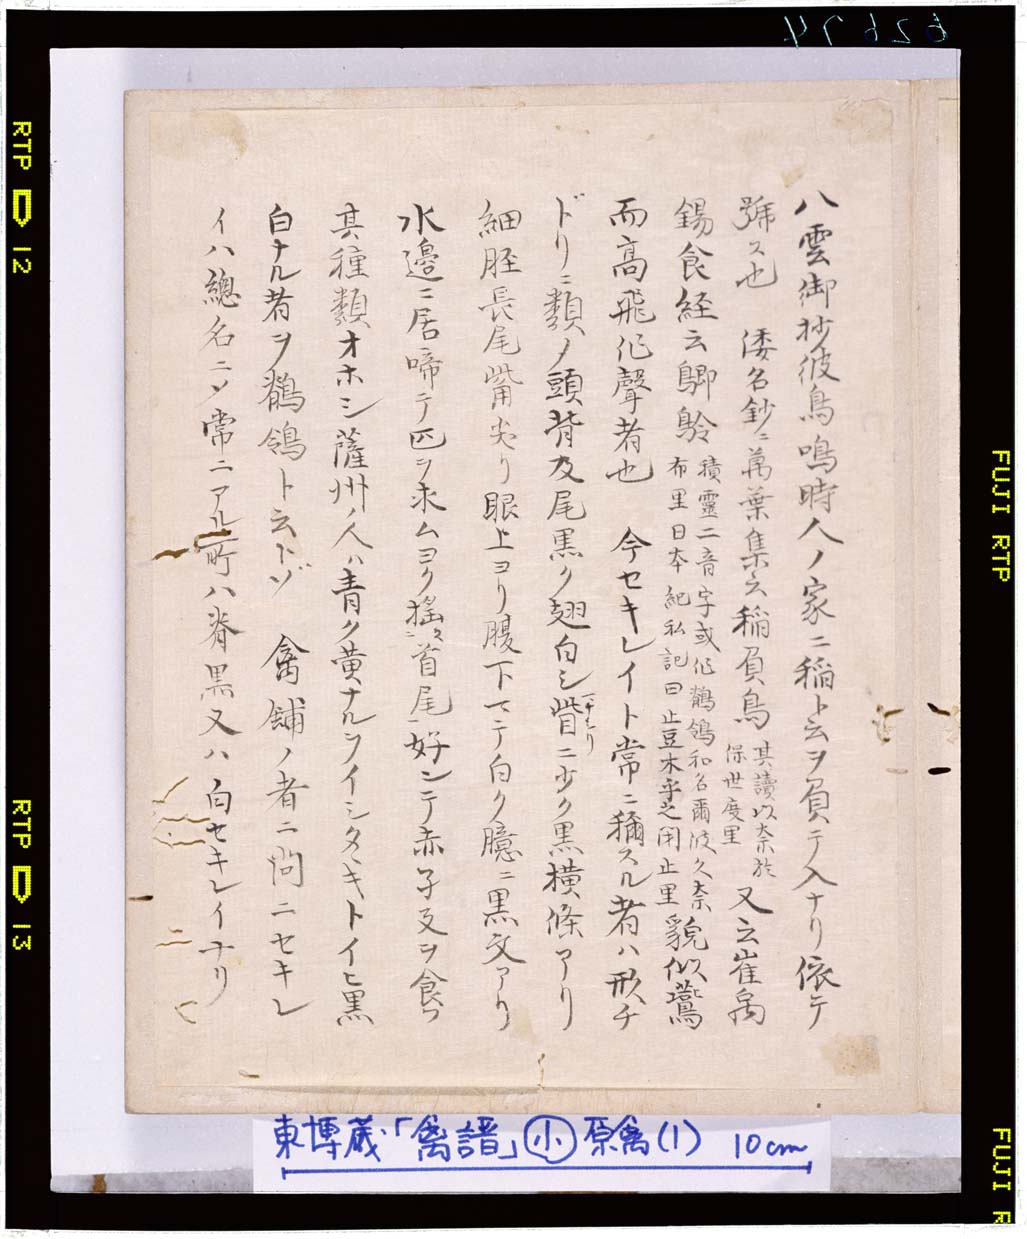 八雲御抄彼鳥鳴時人ノ家ニ稲ト云ヲ負テ入ナリ依テ
號ス也 倭名鈔ニ萬葉集云稲負鳥 其讀以奈於保世度里 又云崔禹
錫食経云䳢鴒 積靈二音字或作鶺鴒和名爾波久奈布里日本紀私記曰止豆木乎之閇止里 貌似鷰
而高飛作聲者也 今セキレイト常ニ稱スル者ハ形チ
ドリニ類ノ頭背及尾黒ク翅白シ背ニ少ク黒横條アリ
細胫長尾觜尖リ眼上ヨリ腹下マデ白ク臆ニ黒文アリ
水邊ニ居啼テ匹ヲ求ムヨク揺首尾好ンテ赤子及ヲ食フ
其種類オホシ薩州ノ人ハ青ク黄ナルヲイシタヽキトイヒ黒
白ナル者ヲ鶺鴒ト云トゾ 禽舗ノ者ニ問ニセキレ
イハ總名ニシ常ニアル町ハ脊黒又ハ白セキレイナリ
東博蔵「禽譜」小 原禽(1) 10cm
62674
RTP 12
RTP 13
FUJI RTP
FUJI R